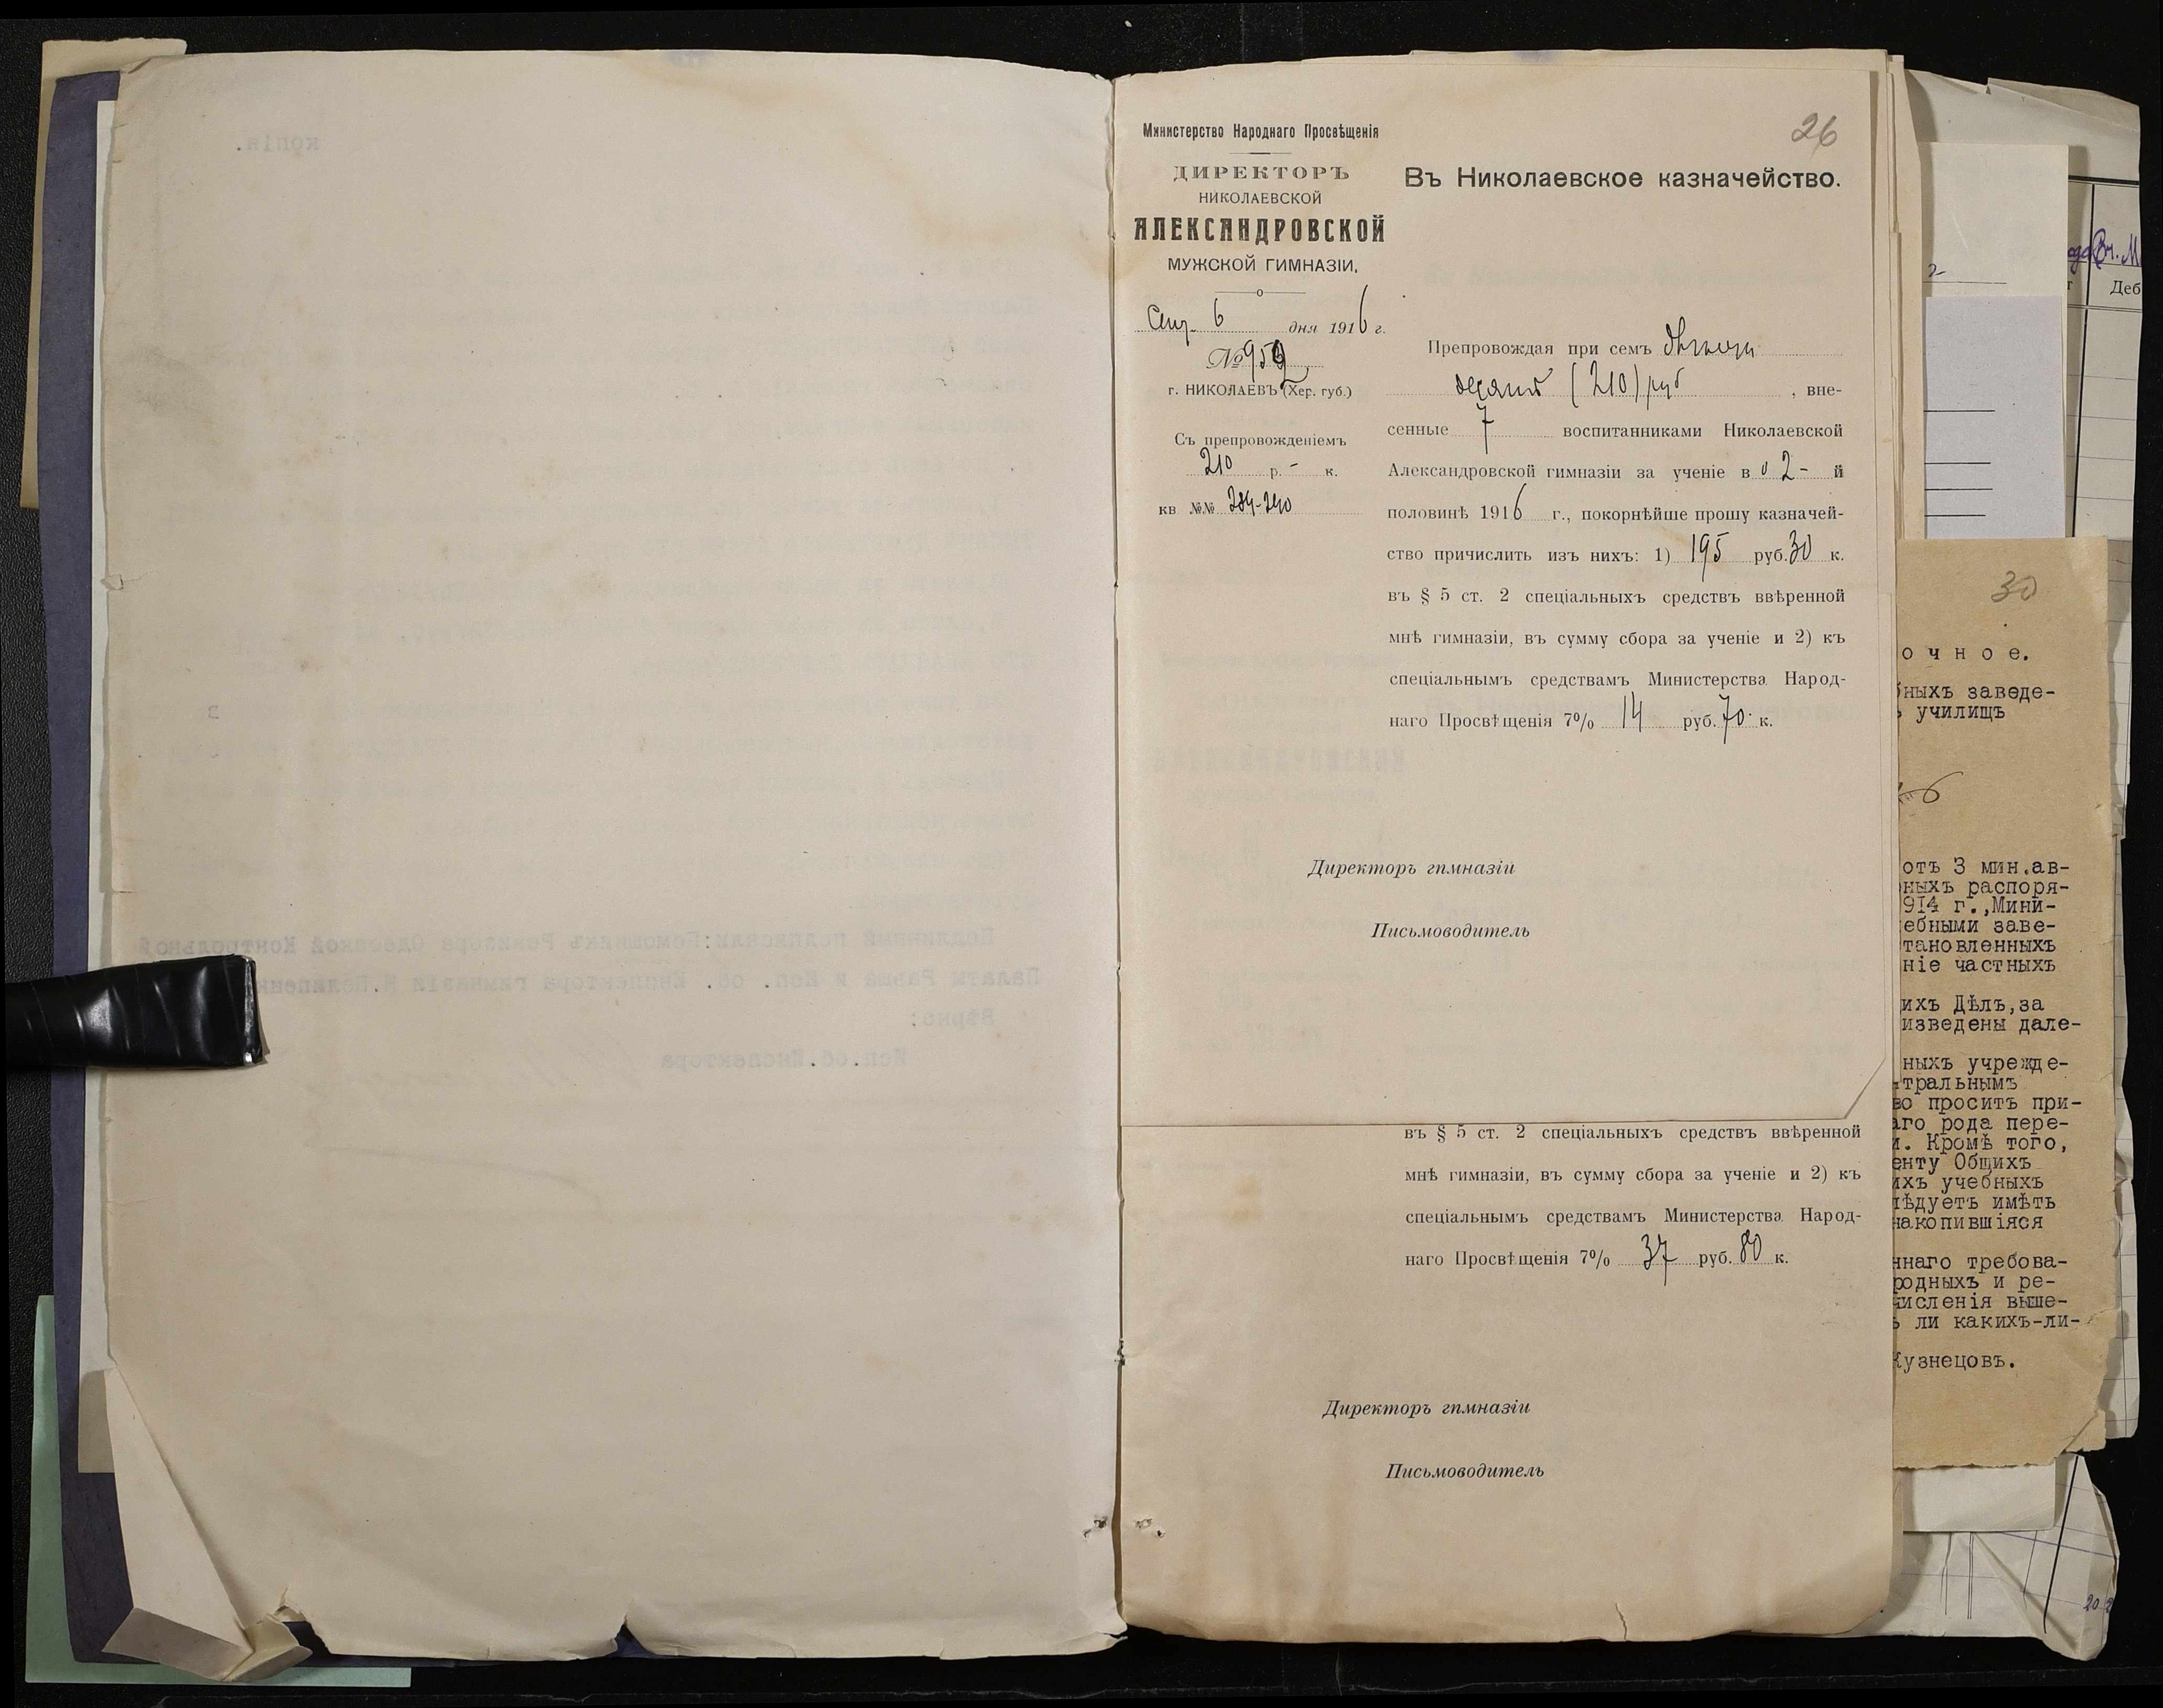 26
Министерство Народнаго Просвѣщенія
ДИРЕКТОРЪ
НИКОЛАЕВСКОЙ
АЛЕКСАНДРОВСКОЙ
МУЖСКОЙ ГИМНАЗІИ.
Сент. 6 дня 1916 г.
№ 952
г. НИКОЛАЕВЪ (Хер. губ.)
Съ препровожденіемъ
210 р. - к.
кв №№ 284-290
Въ Николаевское казначейство.
Препровождая при семъ двѣсти
десять (210) руб , вне-
сенные 7 воспитанниками Николаевской
Александровской гимназіи за ученіе в о 2- й
половинѣ 1916 г., покорнѣйше прошу казначей-
ство причислить изъ нихъ: 1) 195 руб. 30 к.
въ § 5 ст. 2 спеціальныхъ средствъ ввѣренной
мнѣ гимназіи, въ сумму сбора за ученіе и 2) къ
спеціальнымъ средствамъ Министерства Народ-
наго Просвѣщенія 7% 14 руб. 70 к.
Директоръ гимназіи
Письмоводитель
въ § 5 ст. 2 спеціальныхъ средствъ ввѣренной
мнѣ гимназіи, въ сумму сбора за ученіе и 2) къ
спеціальнымъ средствамъ Министерства Народ-
наго Просвѣщенія 7% 37 руб. 80 к.
Директоръ гимназіи
Письмоводитель
30
очное.
ныхъ заведе-
училищъ
отъ 3 мин.ав-
ныхъ распоря-
914 г.,Мини-
ебными заве-
тановленныхъ
ніе частныхъ
ихъ Дѣлъ,за
изведены дале-
ныхъ учрежде-
тральнымъ
во проситъ при-
аго рода пере-
и. Кромѣ того,
енту Общихъ
ихъ учебныхъ
лѣдуетъ имѣть
накопившіяся
ннаго требова-
родныхъ и ре-
численія выше-
ли какихъ-ли-
Кузнецовъ.
Деб